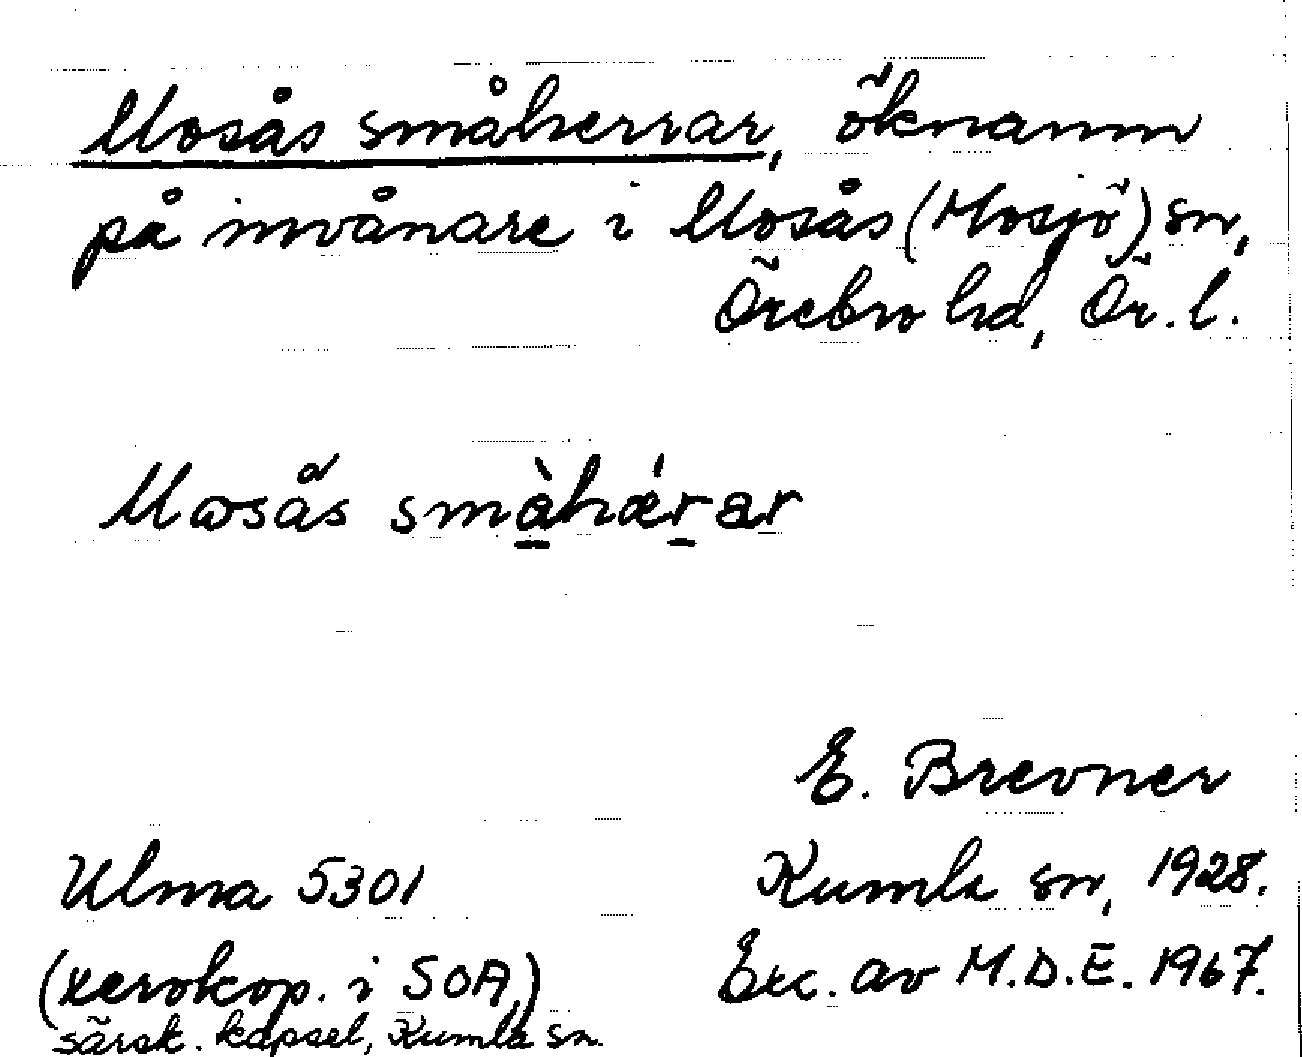 Mosås småherrar, öknamn
på invånare i Mosås (Mosjö) sn,
Örebro hd, Ör. l.
Mɷsås småhǽrar
E. Brevner
Ulma 5301
Kumla sn, 1928.
(xerokop. i SOA,)
Exc. av M.D.E. 1967.
särsk. kapsel, Kumla sn.